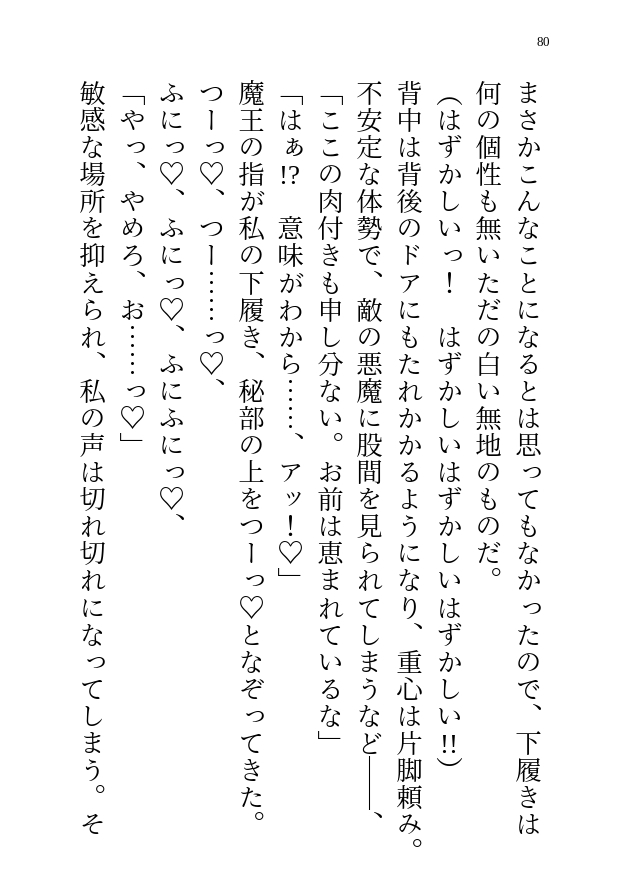 80
まさかこんなことになるとは思ってもなかったので、下履きは
何の個性も無いただの白い無地のものだ。
(はずかしいっ！　はずかしいはずかしいはずかしい!!)
背中は背後のドアにもたれかかるようになり、重心は片脚頼み。
不安定な体勢で、敵の悪魔に股間を見られてしまうなど――、
「ここの肉付きも申し分ない。お前は恵まれているな」
「はぁ!?　意味がわから……、アッ！♡」
魔王の指が私の下履き、秘部の上をつーっ♡となぞってきた。
つーっ♡、つー……っ♡、
ふにっ♡、ふにっ♡、ふにふにっ♡、
「やっ、やめろ、お……っ♡」
敏感な場所を抑えられ、私の声は切れ切れになってしまう。そ